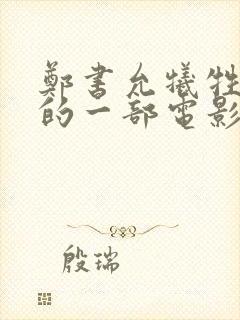 鄭書允犧牲
的一部電影
殷瑞